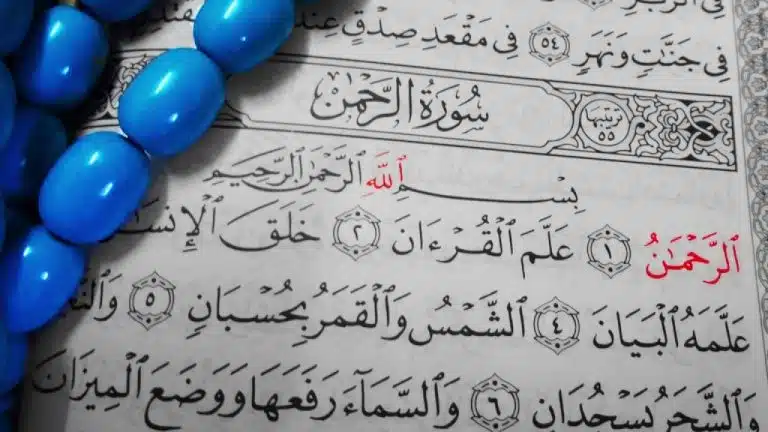 فِي جَنَّٰتٍ وَنَهَرٍ ٥٤ فِي مَقْعَدِ صِدْقٍ
سُورَةُ الرَّحْمَٰن
تَرْتِيبُهَا ٥٥
بِسْمِ ٱللَّهِ ٱلرَّحْمَٰنِ ٱلرَّحِيمِ
ٱلرَّحْمَٰنُ ١ عَلَّمَ ٱلْقُرْءَانَ ٢ خَلَقَ
عَلَّمَهُ ٱلْبَيَانَ ٤ ٱلشَّمْسُ وَٱلْقَمَرُ بِحُسْبَانٍ ٥
وَٱلشَّجَرُ يَسْجُدَانِ ٦ وَٱلسَّمَآءَ رَفَعَهَا وَوَضَعَ ٱلْمِيزَانَ